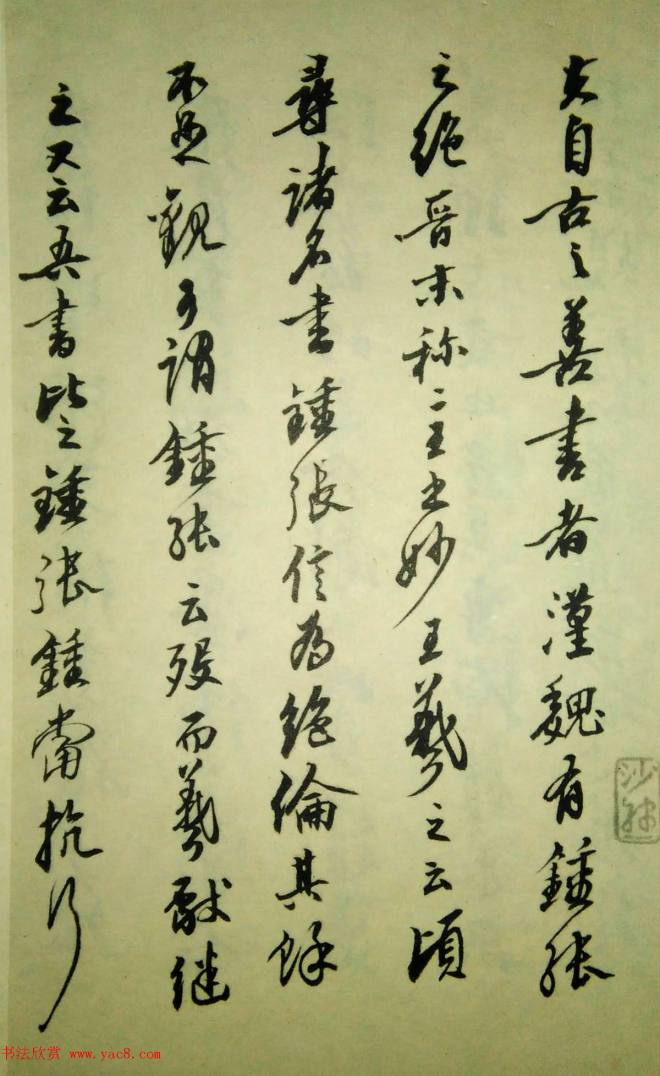 夫自古之善書者漢魏有鍾張
之絶晉末称二王之妙王羲之云頃
尋諸名書鍾張信為絶倫其餘
不足觀可謂鍾張云歿而羲獻继
之又云吾書比之鍾張鍾當抗行
书法欣赏 www.yac8.com